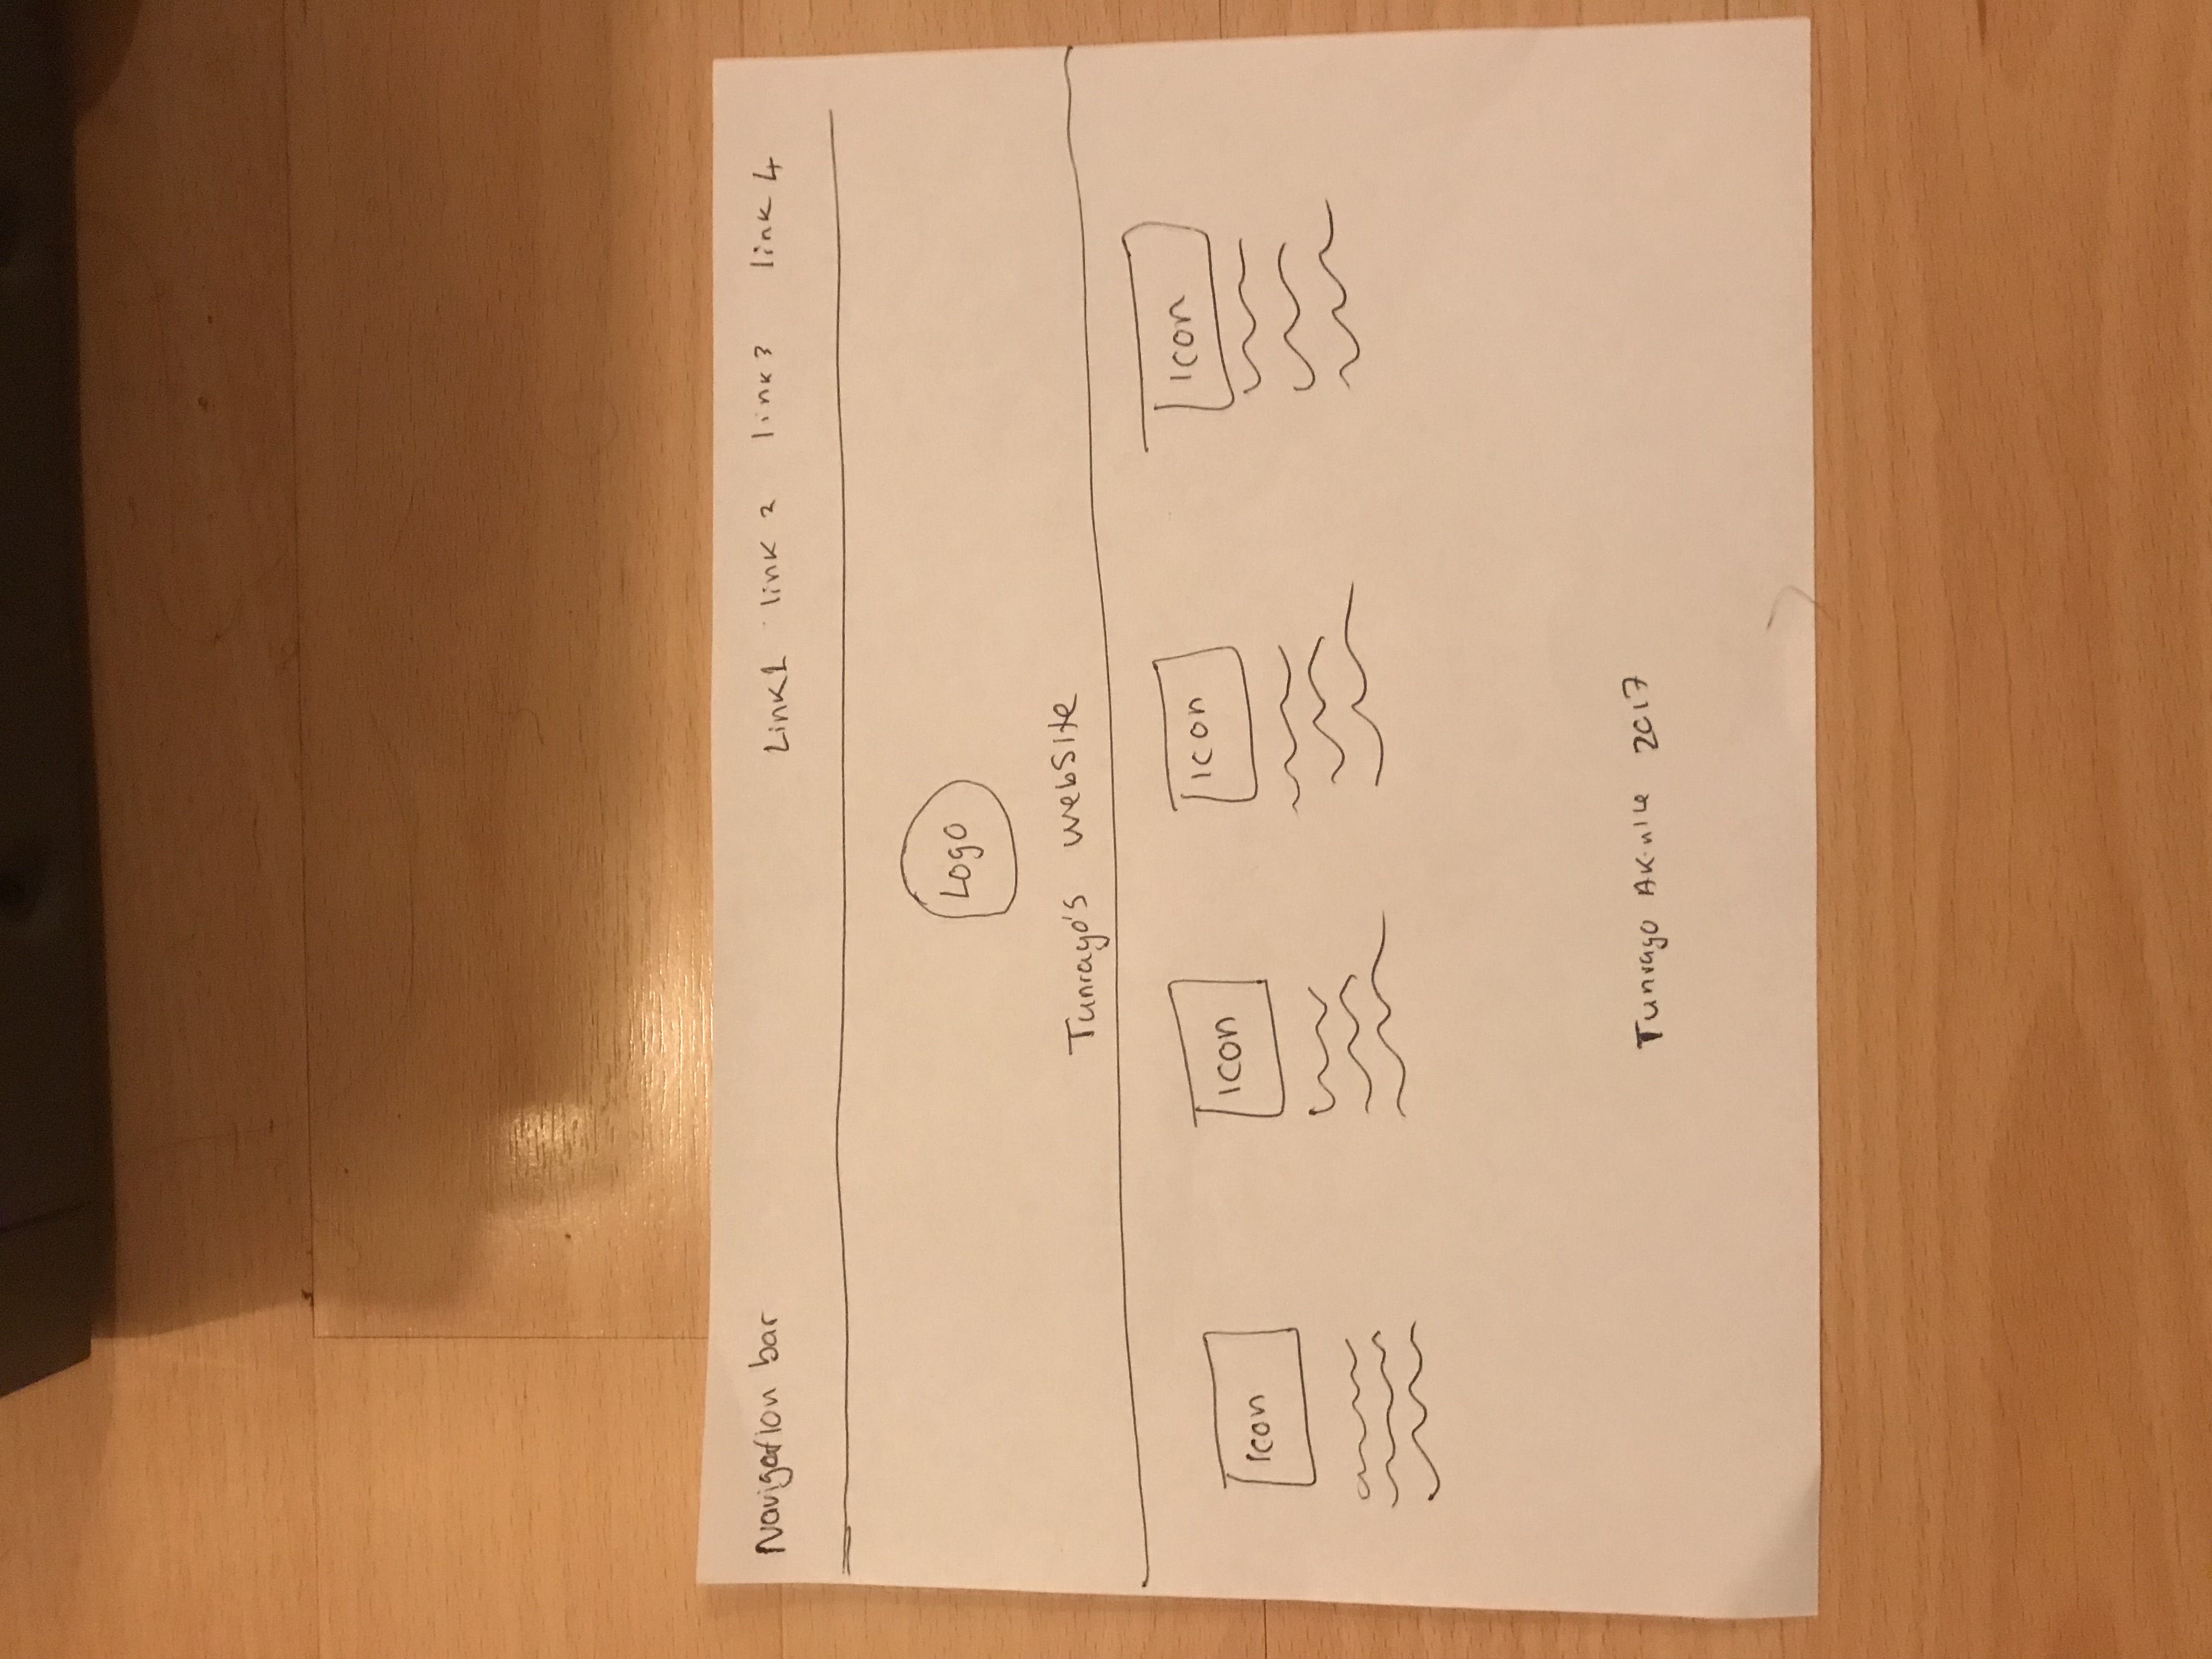 Navigation bar Link1 link 2 link 3 link 4
Logo
Tunrayo's website
Icon Icon Icon Icon
Tunrayo 2017